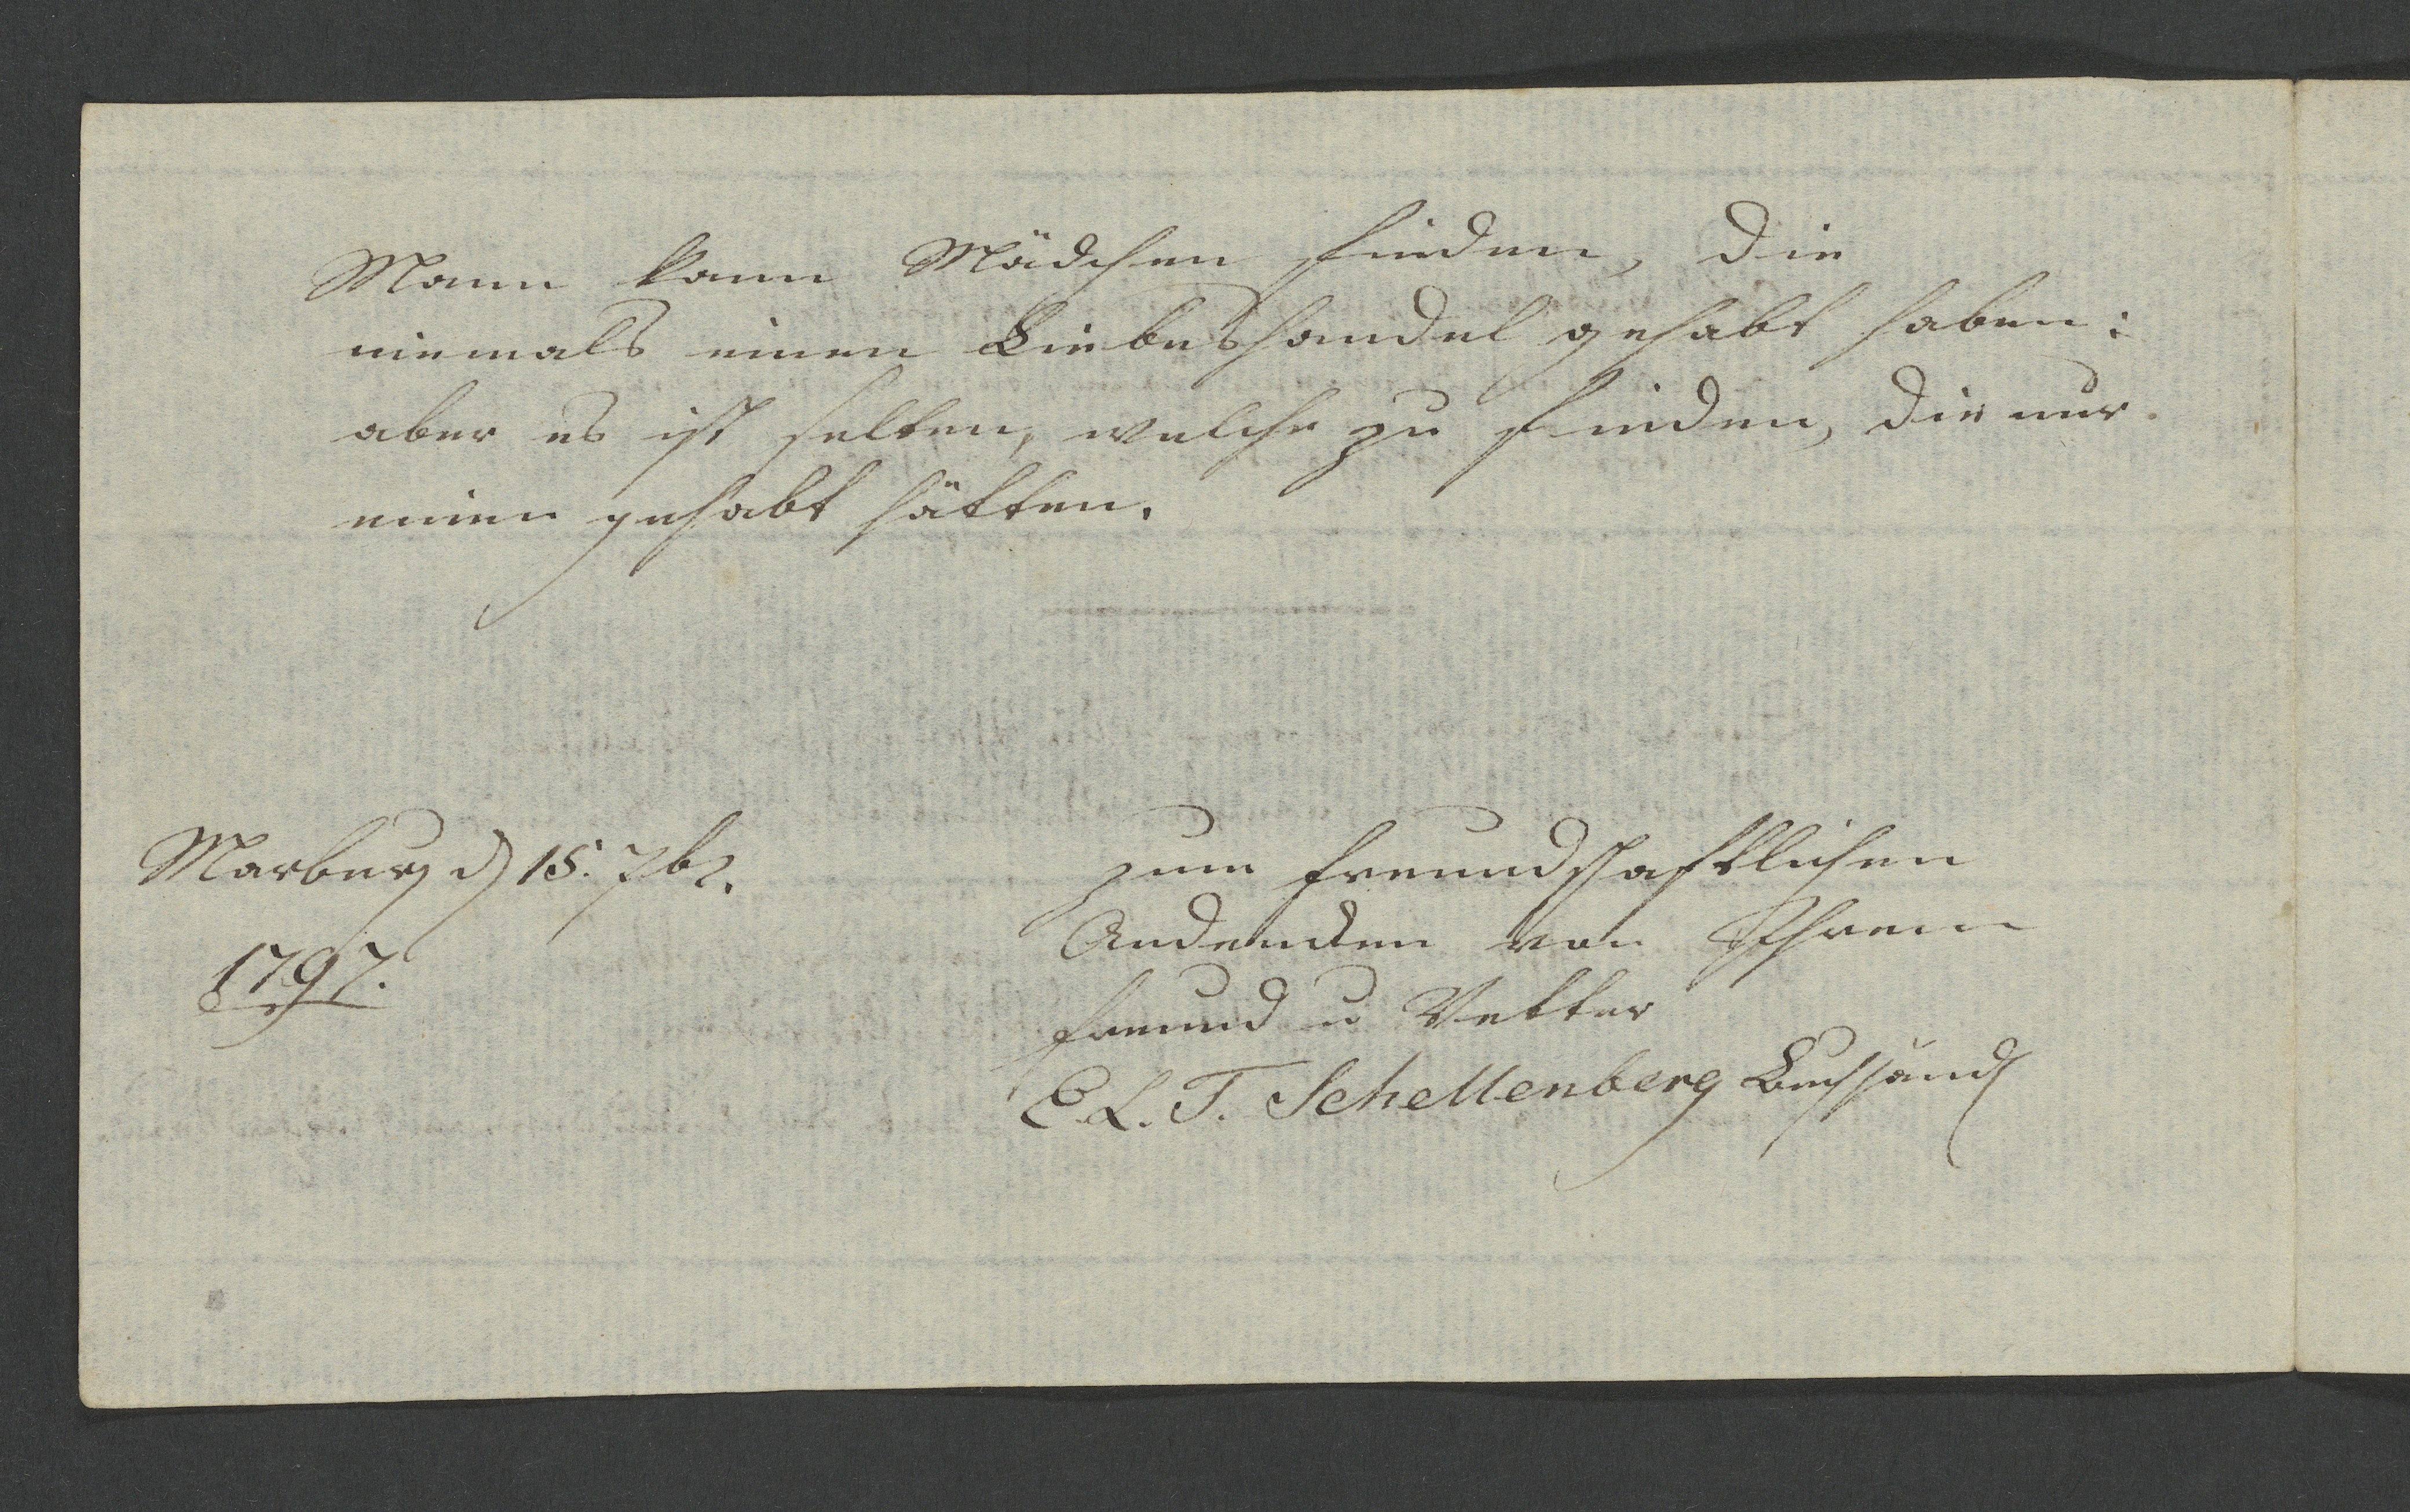 Mann kann Mädchen finden, die
niemals einen Liebeshandel gehabt haben:
aber es ist selten, welche zu finden, die nur
einen gehabt hätten.
Marburg d 15. 7br.
1797.
zum freundschaftlichen
Andenken von Ihrem
Freund u Vetter
E. L. T. Schellenberg Buchhändl